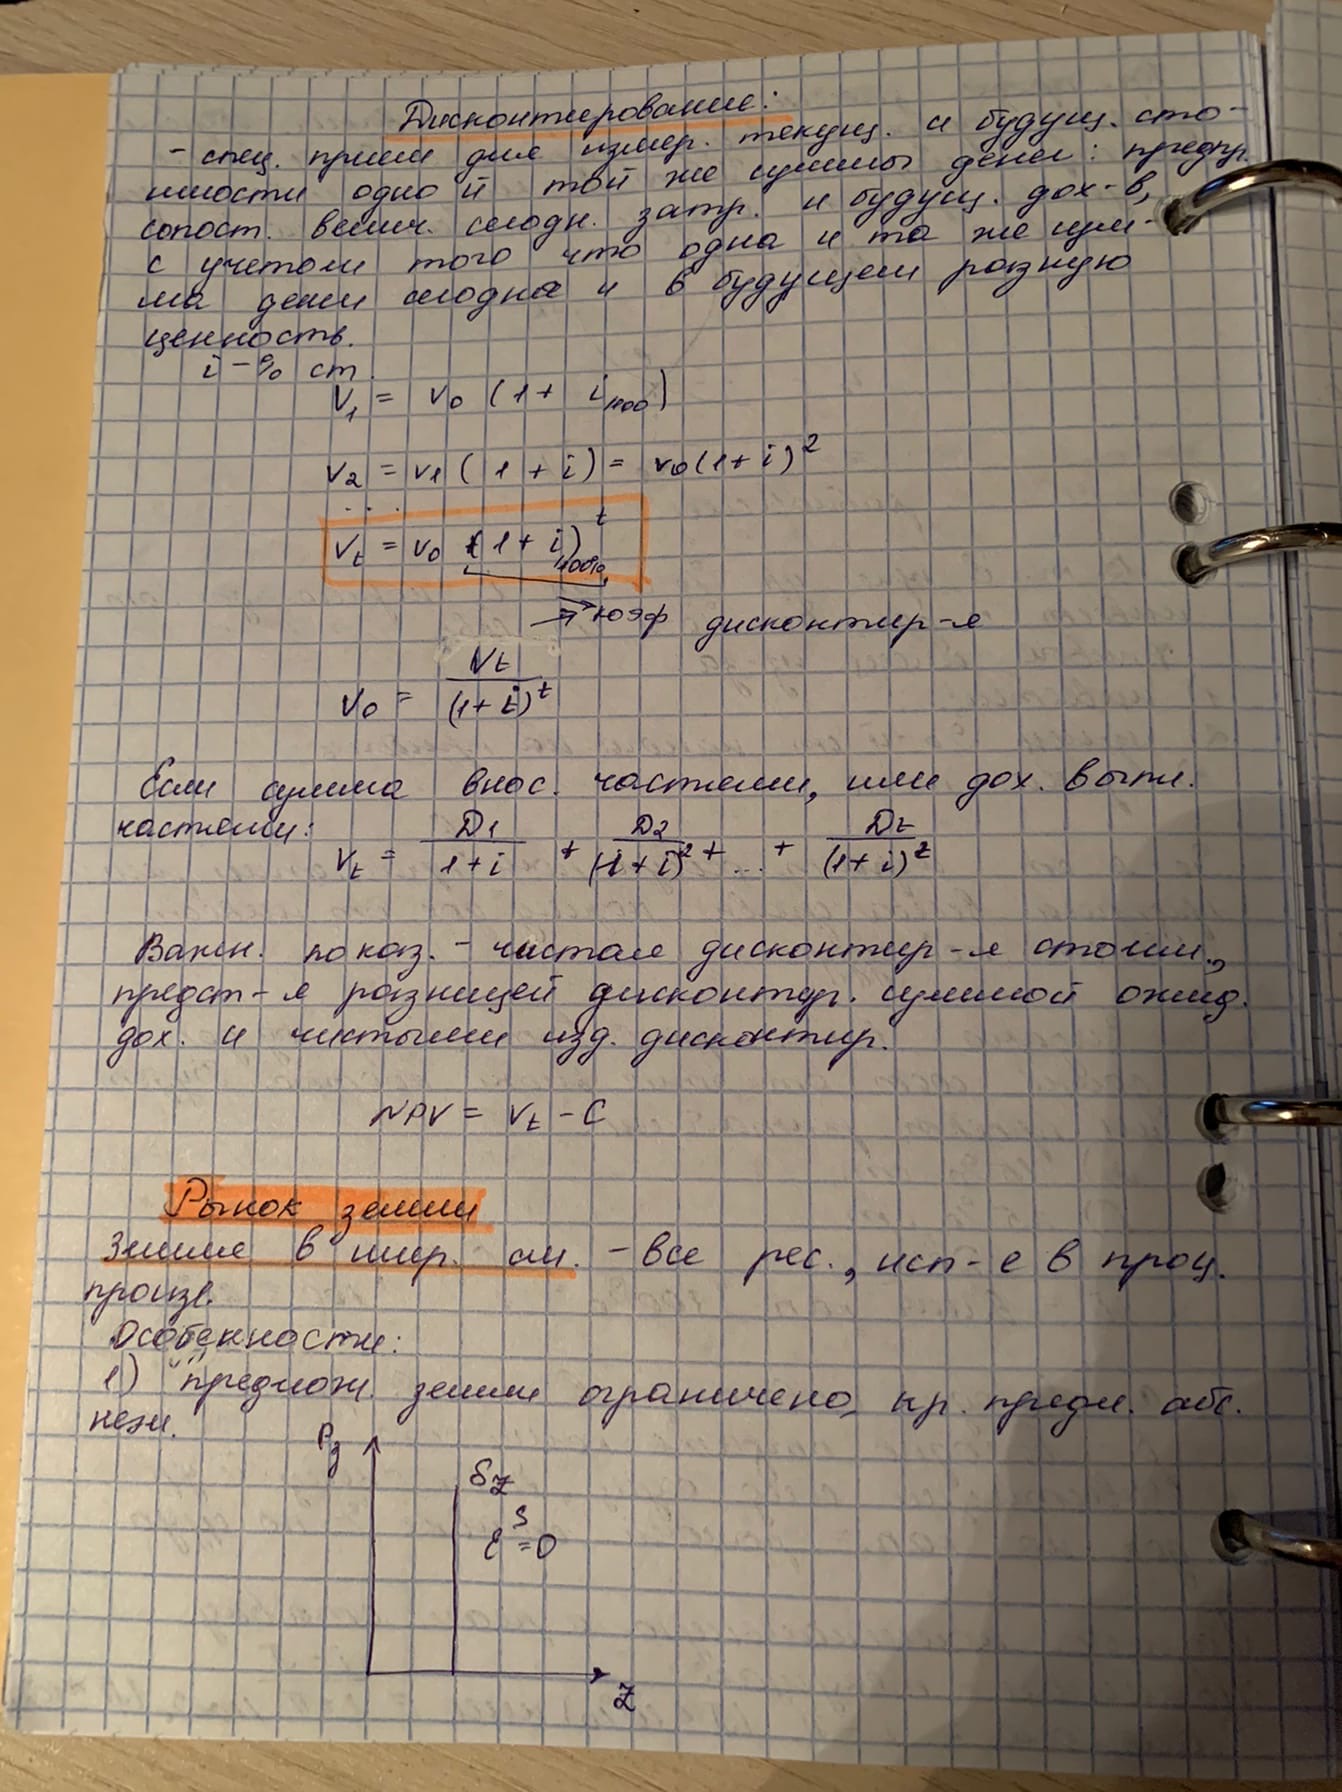 Дисконтирование:
- спец. прием для измер. текущ. и будущ. сто-
имости одно й той же суммы денег: предпр.
сопост. велич. сегодн. затр. и будущ. дох-в,
с учетом того что одна и та же сум-
ма денег сегодня и в будущем разную
ценность.
i - % ст.
V₁ = V₀ (1 + i /100)
V₂ = V₁ (1 + i) = V₀(1+i)²
...
Vt = V₀ (1 + i)^t 100%
⇒ коэф дисконтир-я
V₀ = Vt / (1+i)^t
Если сумма внос. частями, или дох. выпл.
частями:
Vt = D1 / 1+i + D2 / (1+i)² + ... + Dt / (1+i)^t
Важн. показ. - чистая дисконтир-я стоим.,
предст-я разницей дисконтир. суммой ожид.
дох. и чистыми изд. дисконтир.
NPV = Vt - C
Рынок земли
Земля в шир. см. - все рес., исп-е в проц.
произв.
Особенности:
1) предлож. земли ограничено, кр. предл. абс.
неэл.
Pz
Sz
ε^s = 0
Z